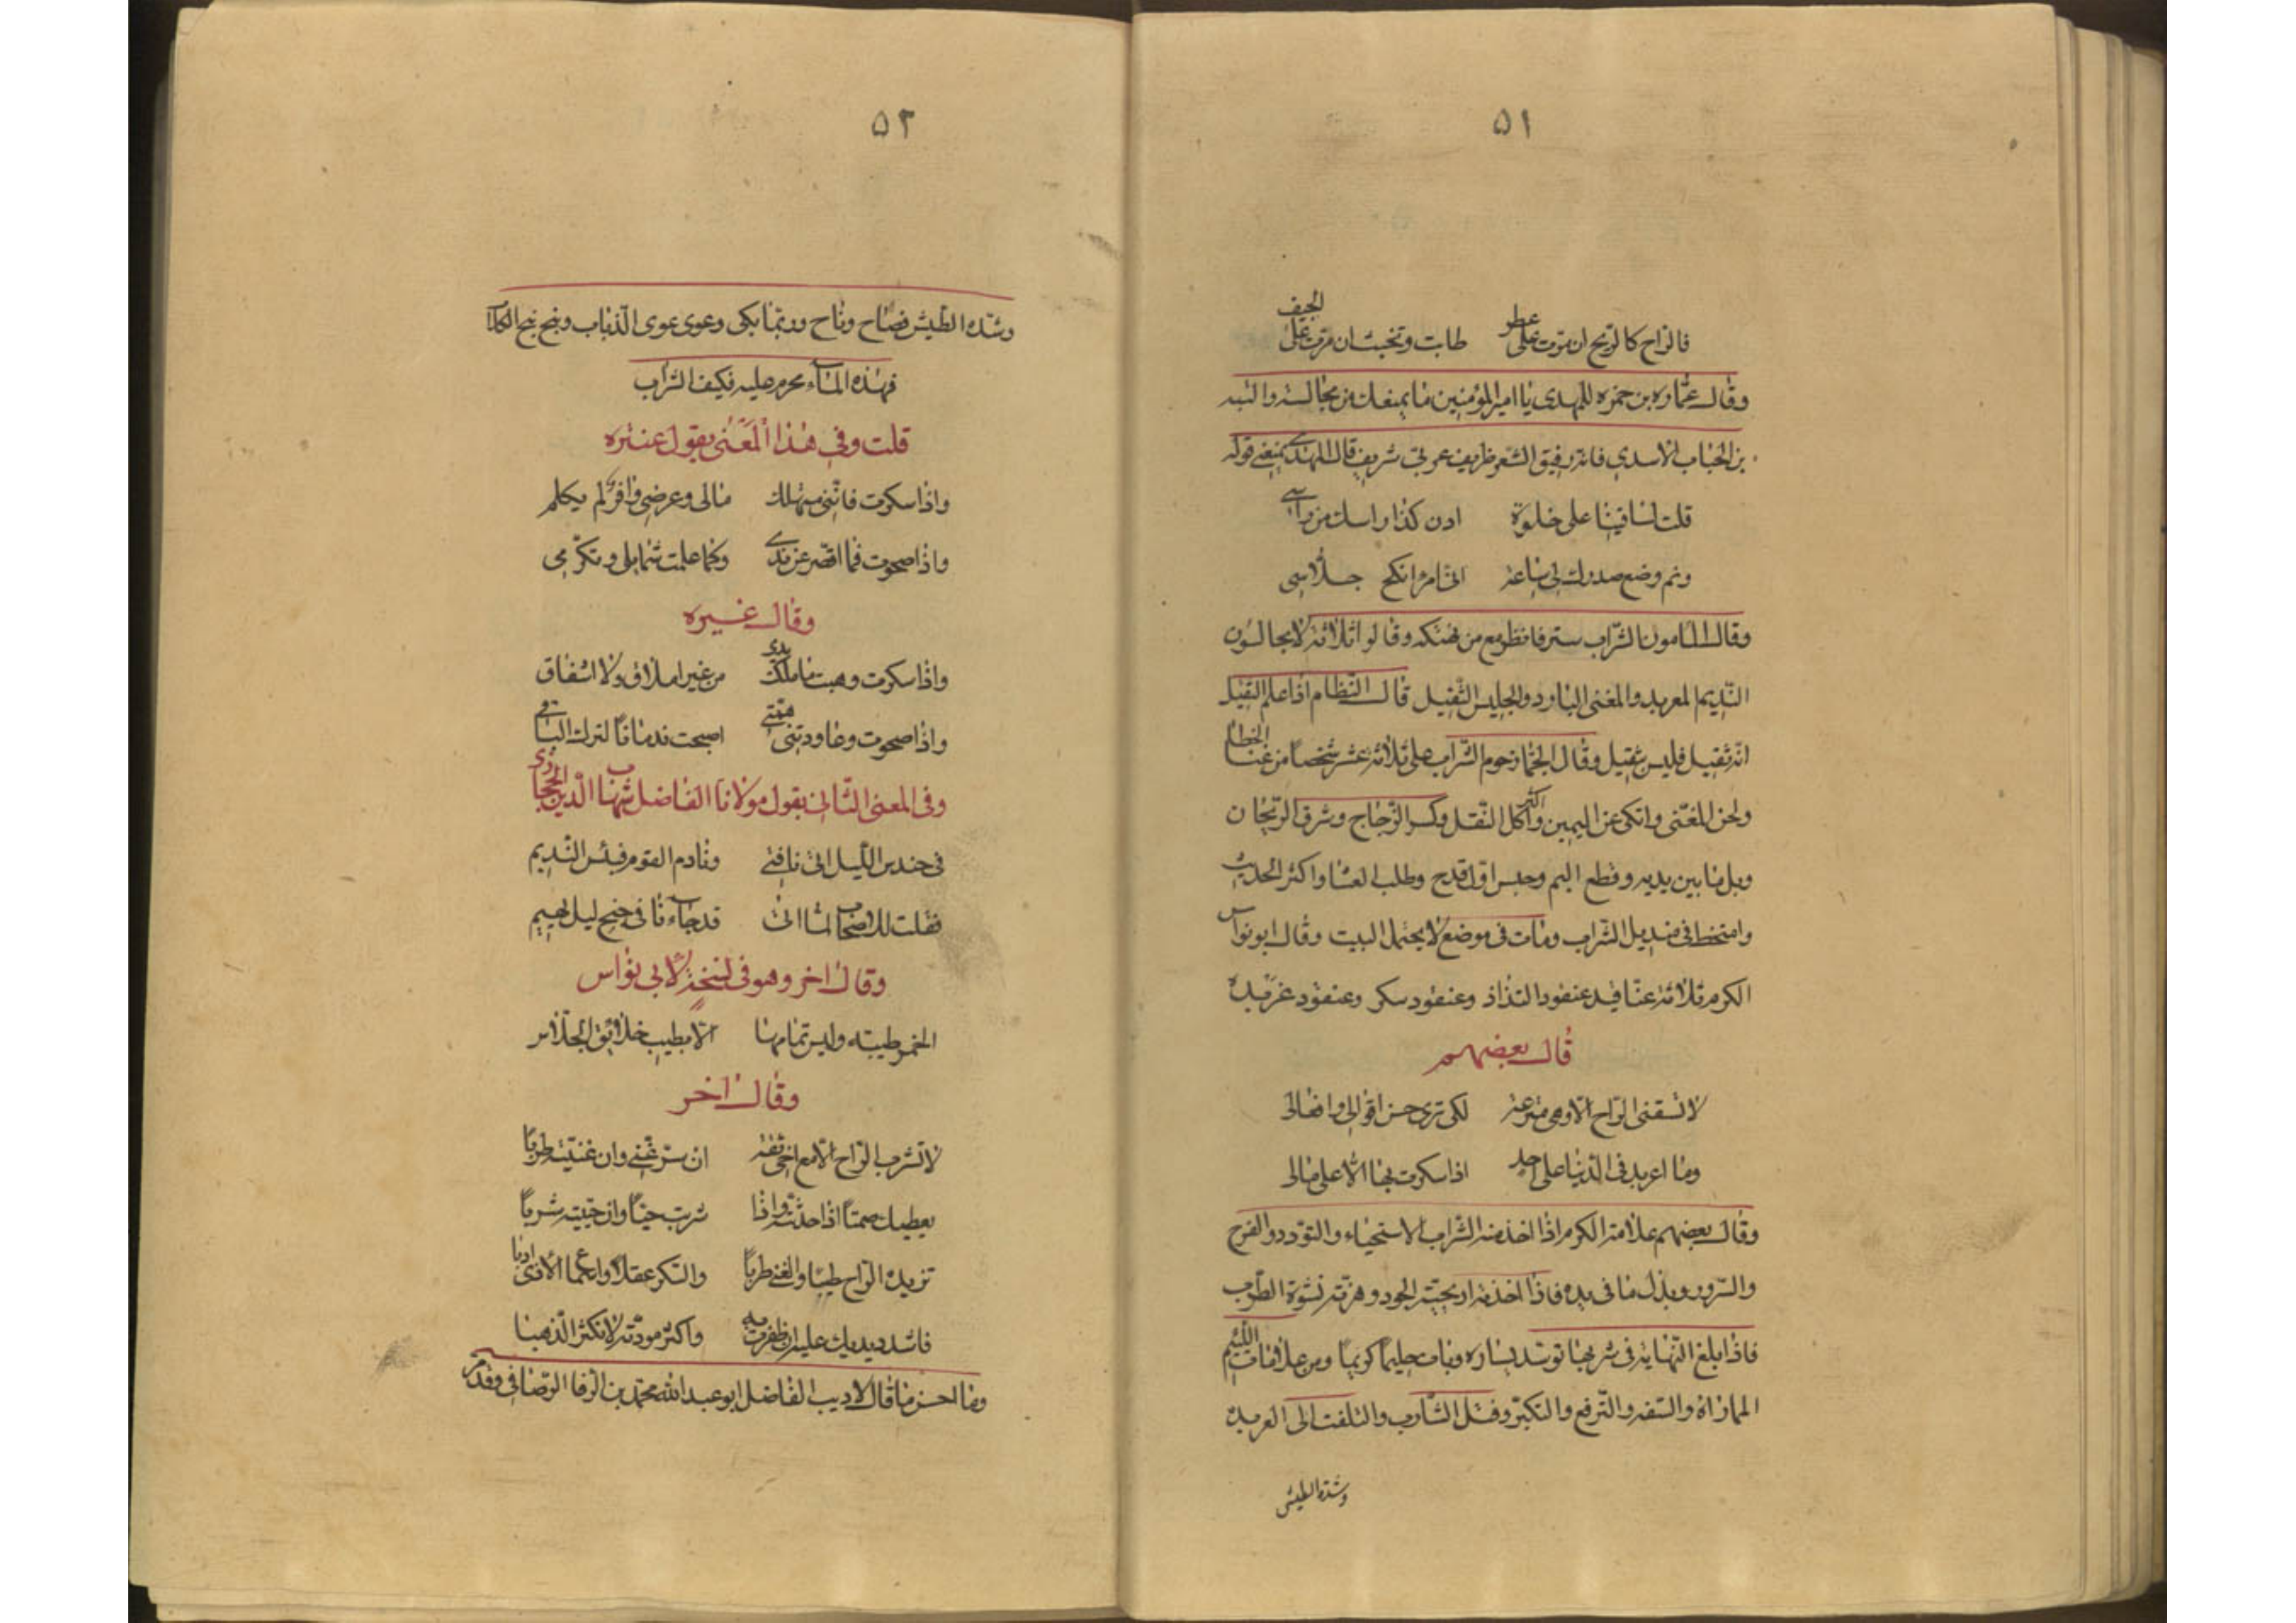 ٥١
فالراح كالريح ان مرت على عطر طابت وتخبث ان مرت على الجيف
وقال عمارة بن حمزه للمهدى يا امير المؤمنين ما يمنعك من مجالسة والبه
بن الحباب الاسدى فانه رقيق الشعر ظريف عربى شريف قال المهدى يمنعنى قوله
قلت لساقينا على خلوة ادن كذا راسك من راسى
ونم وضع صدرك لى ساعة انى امرؤ انكح جلاسى
وقال المامون الشراب ستر فانظر مع من تهتكه وقالوا ثلاثة لا يجالسون
النديم المعربد والمغنى البارد والجليس الثقيل قال النظام اذا علم الثقيل
انه ثقيل فليس بثقيل وقال الجماز حرم الشراب على ثلاثة عشر شخصا من غنا الخطا
ولحن المغنى واتكى عن اليمين واكثر اكل النقل وكسر الزجاج وسرق الريحان
وبل ما بين يديه وقطع البم وحبس اول قدح وطلب العشا واكثر الحديث
وامتخط فى منديل الشراب وبات فى موضع لا يحتمل البيت وقال ابو نواس
الكرم ثلاثة عناقيد عنقود التذاذ وعنقود سكر وعنقود عربدة
قال بعضهم
لا تسقنى الراح الا وهى مترعة لكى ترى حسن اقوالى وافعالى
وما اعربد فى الدنيا على احد اذا سكرت بها الا على مالى
وقال بعضهم علامة الكرم اذا اخذ منه الشراب الاستحياء والتودد والفرح
والسرور وبذل ما فى يده فاذا اخذته اريحية الجود وهزته نشوة الطرب
فاذا بلغ النهاية فى شربها توسد يساره وبات حليما كريما ومن علامات اللئيم
المماراة والسفه والترفع والتكبر وفتل الشارب والتلفت الى العربدة
وشدة الطيش
٥٢
وشدة الطيش فصاح وناح وربما بكى وعوى عوى الذئاب ونبح نبح الكلاب
فهذه الماء محرم عليه فكيف الشراب
قلت وفى هذا المعنى يقول عنتره
واذا سكرت فاننى مستهلك مالى وعرضى وافر لم يكلم
واذا صحوت فما اقصر عن ندى وكما علمت شمايلى وتكرمى
وقال غيره
واذا سكرت وهبت ما ملكت يدى من غير املاق ولا اشفاق
واذا صحوت وعاودتنى همتى اصبحت ندمانا لترك الباقى
وفى المعنى الثانى يقول مولانا الفاضل شهاب الدين الحجازى
فى حندس الليل اتى نافتى ونادم القوم فبئس النديم
فقلت للاصحاب لما اتى قد جاءنا فى جنح ليل بهيم
وقال اخر وهو فى نسخة لابى نواس
الخمر طيبه وليس تمامها الا بطيب خلائق الجلاس
وقال اخر
لا تشرب الراح الا مع اخى ثقة ان سر غنى وان غنيته طربا
يعطيك صمتا اذا حدثته واذا شربت حيا وان حييته شربا
تزيده الراح طيبا والغنى طربا والسكر عقلا واعما الاذى ادبا
فاشدد يديك عليه ان ظفرت به واكثر مودته لا تكثر الذهبا
وما احسن ما قال الاديب الفاضل ابو عبد الله محمد بن الرفا الرصافى وقدم